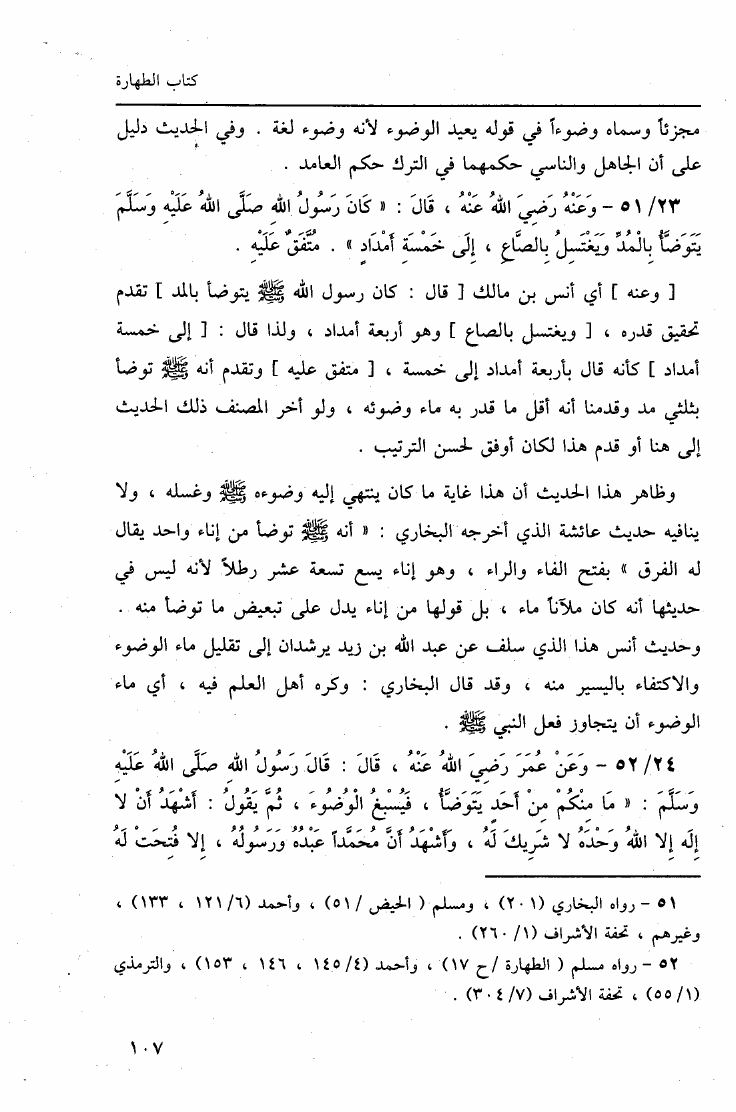 كتاب الطهارة
مجزئاً وسماه وضوءاً في قوله يعيد الوضوء لأنه وضوء لغة . وفي الحديث دليل
على أن الجاهل والناسي حكمهما في الترك حكم العامد .
٥١/٢٣ - وَعَنْهُ رَضِيَ اللهُ عَنْهُ ، قَالَ : « كَانَ رَسُولُ اللهِ صَلَّى اللهُ عَلَيْهِ وَسَلَّمَ
يَتَوَضَّأُ بِالْمُدِّ وَيَغْتَسِلُ بِالصَّاعِ ، إِلَى خَمْسَةِ أَمْدَادٍ » . مُتَّفَقٌ عَلَيْهِ .
[ وعنه ] أي أنس بن مالك [ قال : كان رسول الله ﷺ يتوضأ بالمد ] تقدم
تحقيق قدره ، [ ويغتسل بالصاع ] وهو أربعة أمداد ، ولذا قال : [ إلى خمسة
أمداد ] كأنه قال بأربعة أمداد إلى خمسة ، [ متفق عليه ] وتقدم أنه ﷺ توضأ
بثلثي مد وقدمنا أنه أقل ما قدر به ماء وضوئه ، ولو أخر المصنف ذلك الحديث
إلى هنا أو قدم هذا لكان أوفق لحسن الترتيب .
وظاهر هذا الحديث أن هذا غاية ما كان ينتهي إليه وضوءه ﷺ وغسله ، ولا
ينافيه حديث عائشة الذي أخرجه البخاري : « أنه ﷺ توضأ من إناء واحد يقال
له الفرق » بفتح الفاء والراء ، وهو إناء يسع تسعة عشر رطلاً لأنه ليس في
حديثها أنه كان ملآناً ماء ، بل قولها من إناء يدل على تبعيض ما توضأ منه .
وحديث أنس هذا الذي سلف عن عبد الله بن زيد يرشدان إلى تقليل ماء الوضوء
والاكتفاء باليسير منه ، وقد قال البخاري : وكره أهل العلم فيه ، أي ماء
الوضوء أن يتجاوز فعل النبي ﷺ .
٥٢/٢٤ - وَعَنْ عُمَرَ رَضِيَ اللهُ عَنْهُ ، قَالَ : قَالَ رَسُولُ اللهِ صَلَّى اللهُ عَلَيْهِ
وَسَلَّمَ : « مَا مِنْكُمْ مِنْ أَحَدٍ يَتَوَضَّأُ ، فَيُسْبِغُ الْوُضُوءَ ، ثُمَّ يَقُولُ : أَشْهَدُ أَنْ لا
إِلَه إِلا اللهُ وَحْدَهُ لا شَرِيكَ لَهُ ، وَأَشْهَدُ أَنَّ مُحَمَّداً عَبْدُهُ وَرَسُولُهُ ، إِلا فُتِحَتْ لَهُ
٥١ - رواه البخاري (٢٠١) ، ومسلم ( الحيض /٥١) ، وأحمد (١٢١/٦ ، ١٣٣) ،
وغيرهم ، تحفة الأشراف (٢٦٠/١) .
٥٢ - رواه مسلم ( الطهارة /ح ١٧) ، وأحمد (١٤٥/٤ ، ١٤٦ ، ١٥٣) ، والترمذي
(٥٥/١) ، تحفة الأشراف (٣٠٤/٧) .
١٠٧